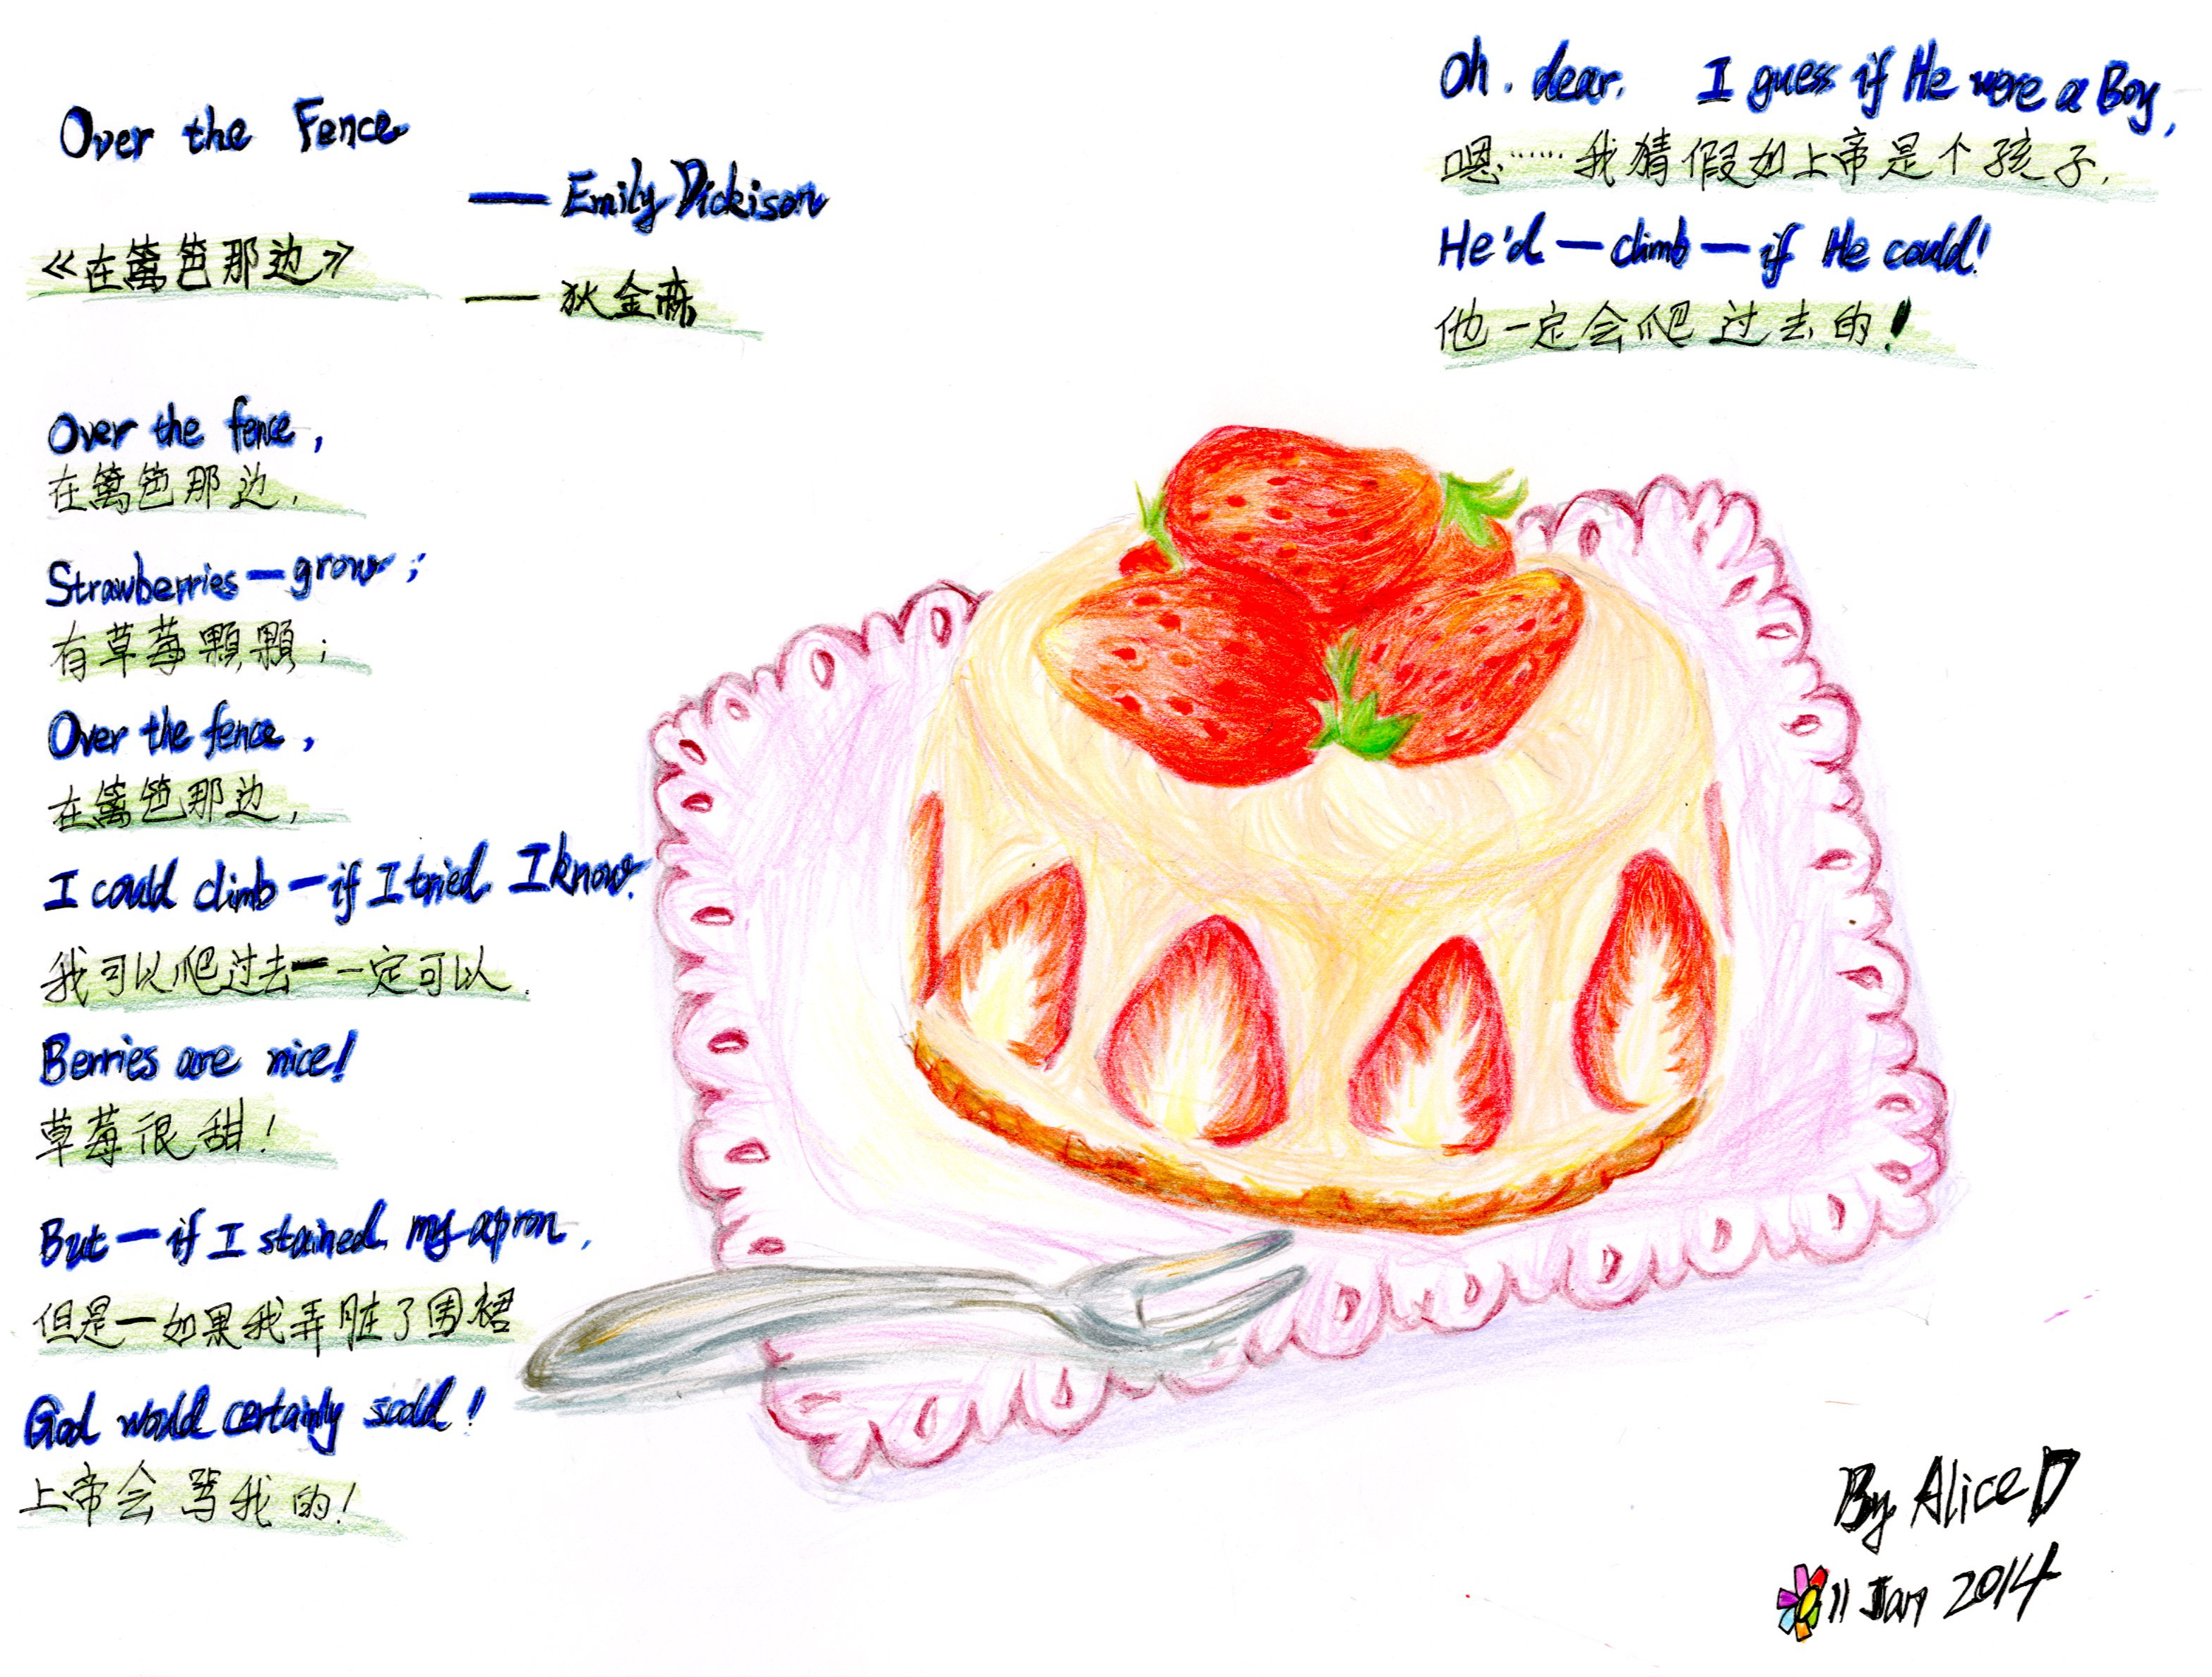 Over the Fence
— Emily Dickison
《在篱笆那边》
— 狄金森
Over the fence,
在篱笆那边,
Strawberries — grow;
有草莓颗颗;
Over the fence,
在篱笆那边,
I could climb — if I tried I know.
我可以爬过去 — 一定可以.
Berries are nice!
草莓很甜!
But — if I stained my apron,
但是—如果我弄脏了围裙
God would certainly scold!
上帝会骂我的!
Oh. dear. I guess if He were a Boy,
嗯……我猜假如上帝是个孩子.
He'd — climb — if He could!
他一定会爬过去的!
By Alice D
11 Jan 2014